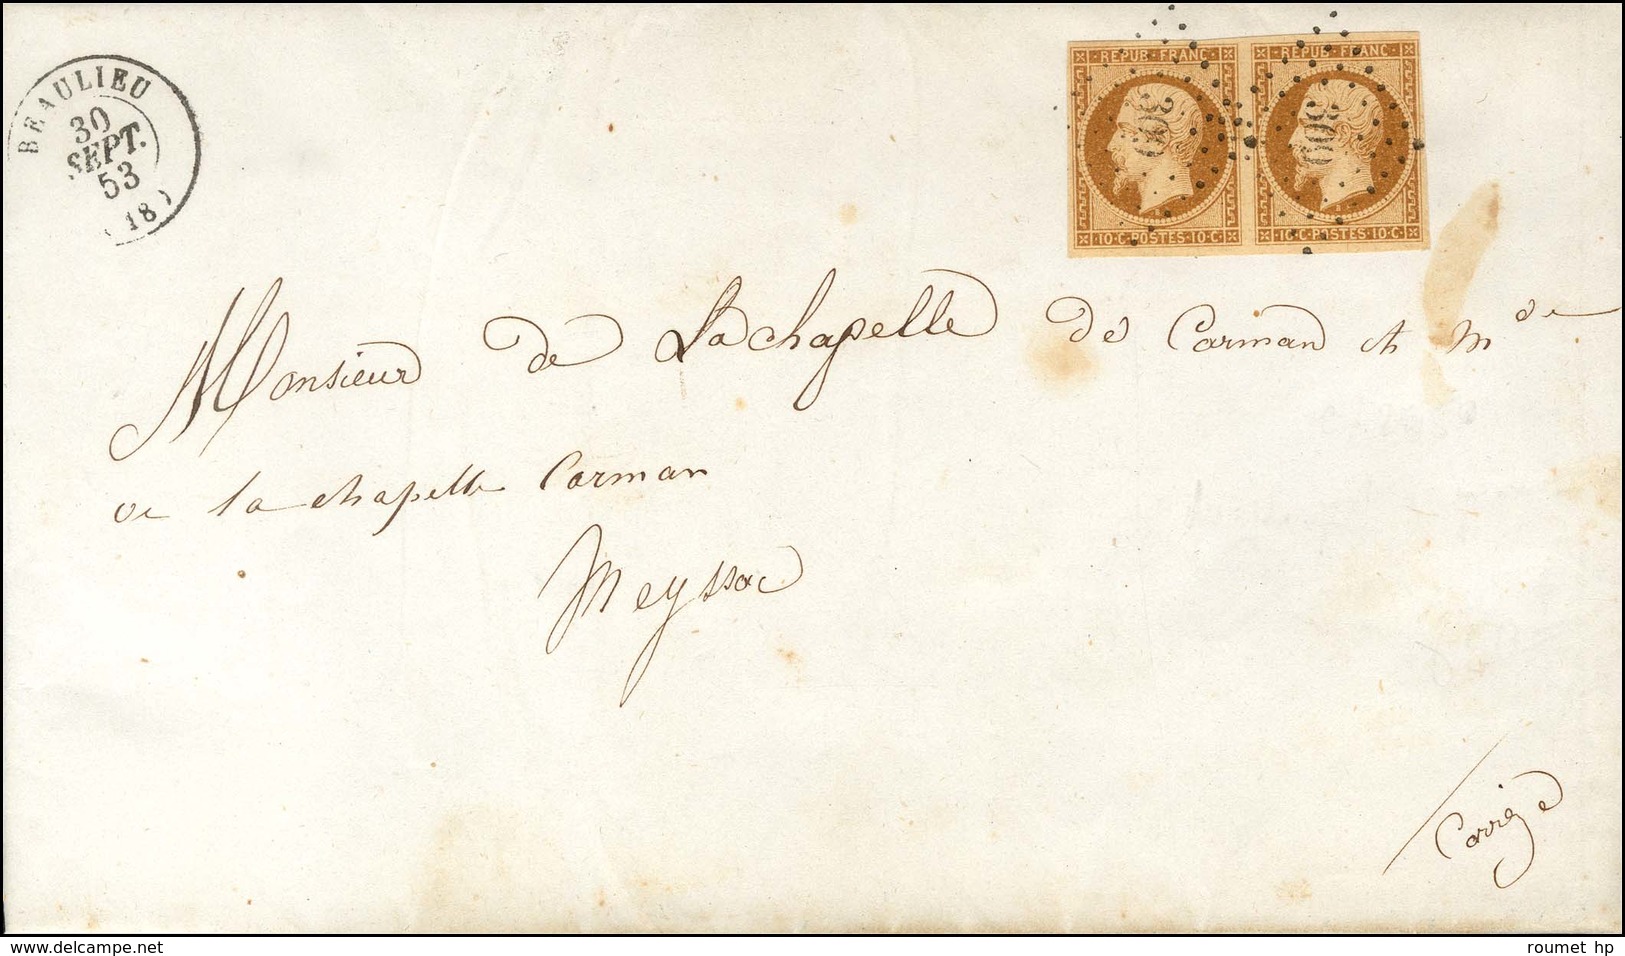 BEAULIEU
30
SEPT.
53
(18)
REPUB. FRANC.
10.C. POSTES. 10.C.
309
REPUB. FRANC.
10.C. POSTES. 10.C.
309
Monsieur de Lachapelle de Carman et Mde
de la chapelle Carman
Meyssac
Corrèze
www.delcampe.net
roumet hp